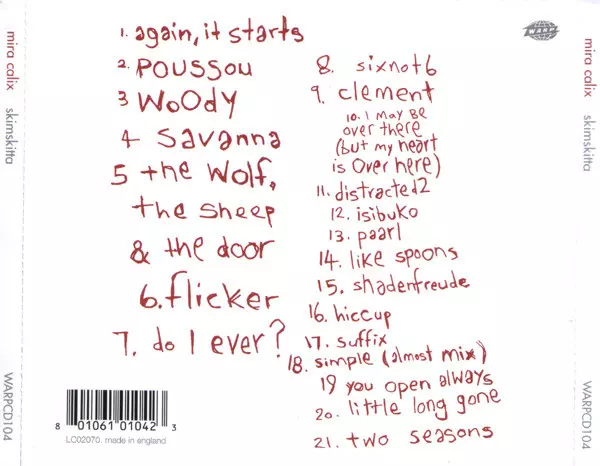 mira calix skimskitta
WARPCD104
1. again, it starts
2. POUSSOU
3 WOODY
4 Savanna
5 the Wolf,
the sheep
& the door
6. flicker
7. do I ever?
8 01061 01042 3
LC02070. made in england
WARP
8. sixnot6
9. clement
10. I MAY BE
over there
(but my heart
is over here)
11. distracted2
12. isibuko
13. paarl
14. like spoons
15. shadenfreude
16. hiccup
17. suffix
18. simple (almost mix)
19 you open always
20. little long gone
21. two seasons
mira calix skimskitta
WARPCD104